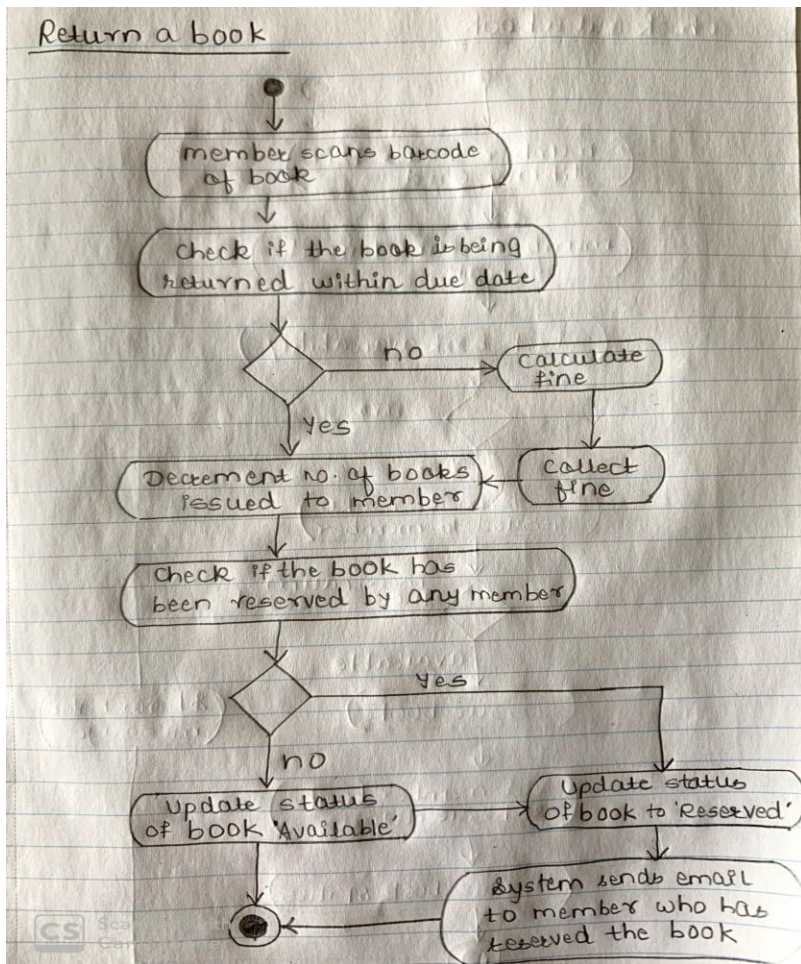 Return a book
member scans barcode
of book
Check if the book is being
returned within due date
no
calculate
fine
Yes
Decrement no. of books
issued to member
collect
fine
Check if the book has
been reserved by any member
Yes
no
Update status
of book 'Available'
Update status
of book to 'Reserved'
System sends email
to member who has
reserved the book
CS